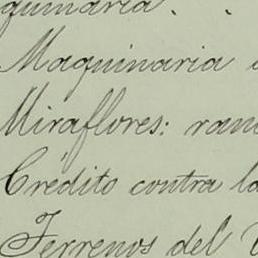 quinaria.
Maquinaria
Miraflores: ram
Crédito contra la
Terrenos del